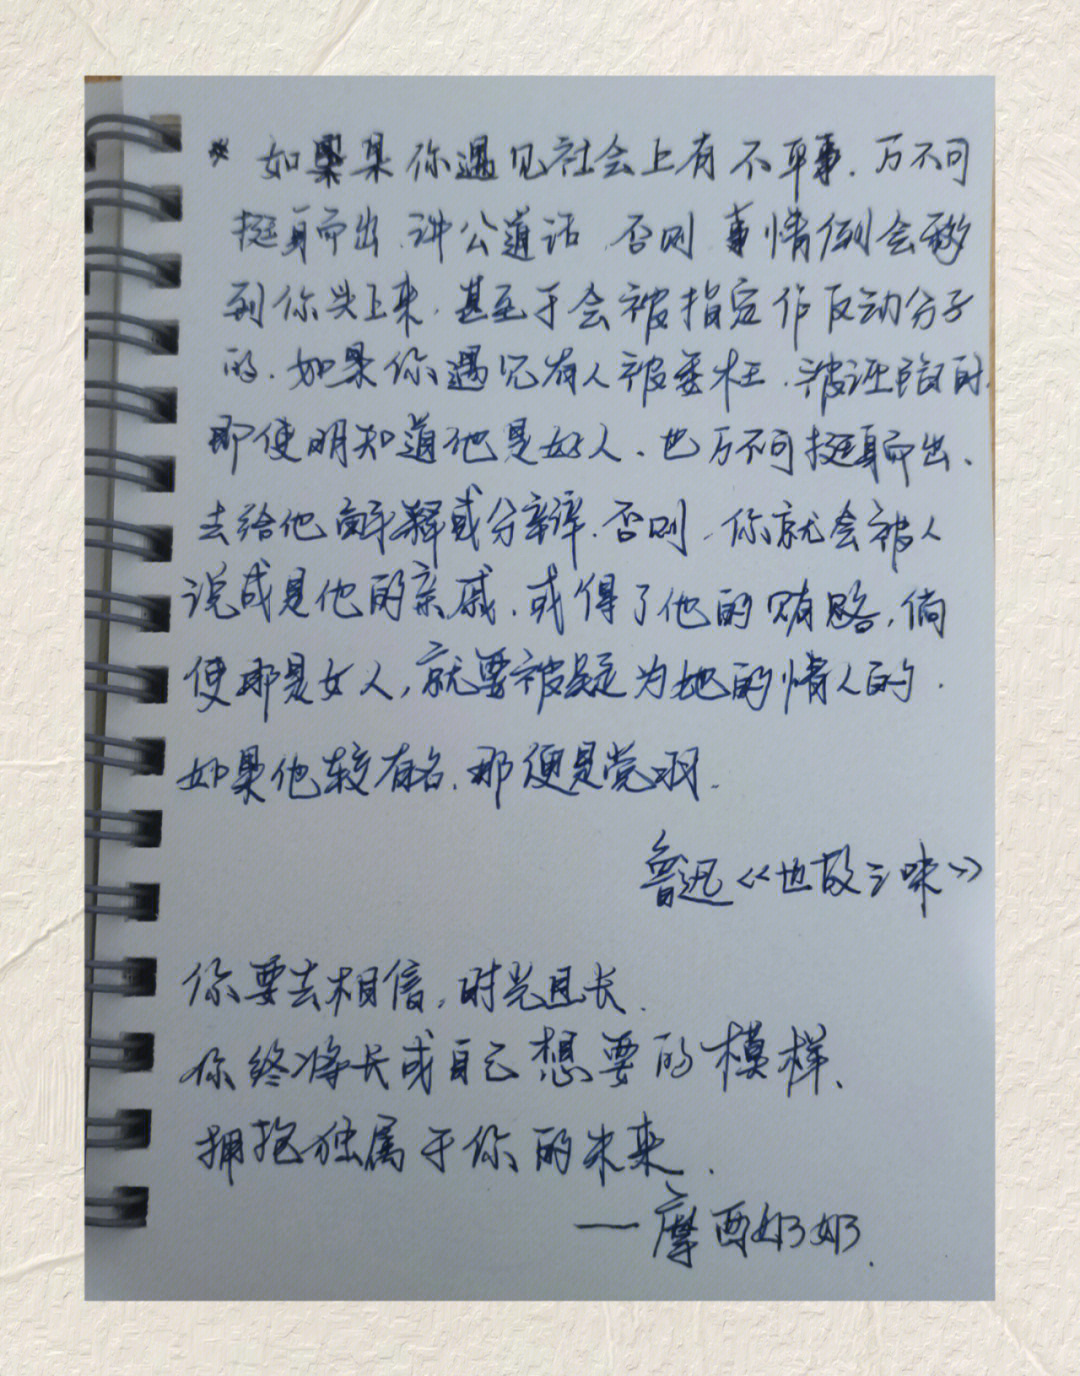 * 如果果你遇见社会上有不平事.万不可
挺身而出.讲公道话.否则事情倒会移
到你头上来.甚至于会被指定作反动分子
的.如果你遇见有人被委枉.被诬陷时.
即使明知道他是好人、也万不可挺身而出、
去给他解释或分辩.否则.你就会被人
说成是他的亲戚.或得了他的贿赂,倘
使那是女人,就要被疑为她的情人的.
如果他较有名.那便是党羽.
鲁迅《也故之味》
你要去相信,时光且长.
你终将长成自己想要的模样、
拥抱独属于你的未来.
——摩西奶奶.